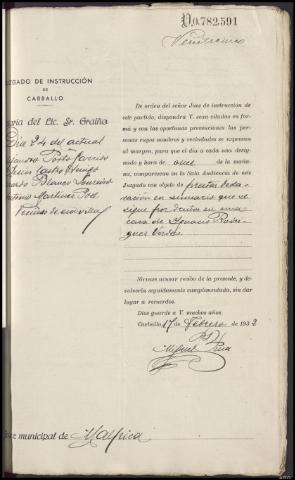 D.0.782.591
Veinticinco
JUZGADO DE INSTRUCCIÓN
DE
CARBALLO
aría del Lic. Sr. Graiña
Dia 24 del actual
Vecinos de
De orden del señor Juez de instrucción de
este partido, dispondrá V. sean citadas en for-
ma y con las oportunas prevenciones las per-
sonas cuyos nombres y vecindades se expresan
al margen, para que el día a cada uno desig-
nado y hora de once de la maña-
na, comparezcan en la Sala Audiencia de este
Juzgado con objeto de prestar decla-
ración en sumario que se
sigue por daños en una
casa de Ignacio Rodrí-
guez
Sírvase acusar recibo de la presente, y de-
volverla seguidamente cumplimentada, sin dar
lugar a recuerdos.
Dios guarde a V. muchos años.
Carballo, 17 de Febrero de 1932
Miguel
municipal de Malpica